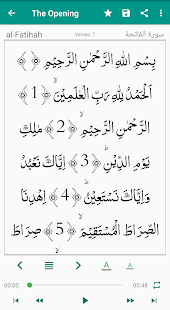 The Opening
al-Fatihah Verses: 7 سورة الفاتحة
بِسْمِ اللهِ الرَّحْمٰنِ الرَّحِيْمِ ﴿﴾
اَلْحَمْدُ لِلّٰهِ رَبِّ الْعٰلَمِيْنَ ﴿1﴾
الرَّحْمٰنِ الرَّحِيْمِ ﴿2﴾ مٰلِكِ
يَوْمِ الدِّيْنِ ﴿3﴾ اِيَّاكَ نَعْبُدُ
وَاِيَّاكَ نَسْتَعِيْنُ ﴿4﴾ اِهْدِنَا
الصِّرَاطَ الْمُسْتَقِيْمَ ﴿5﴾ صِرَاطَ
A A
00:00 00:48